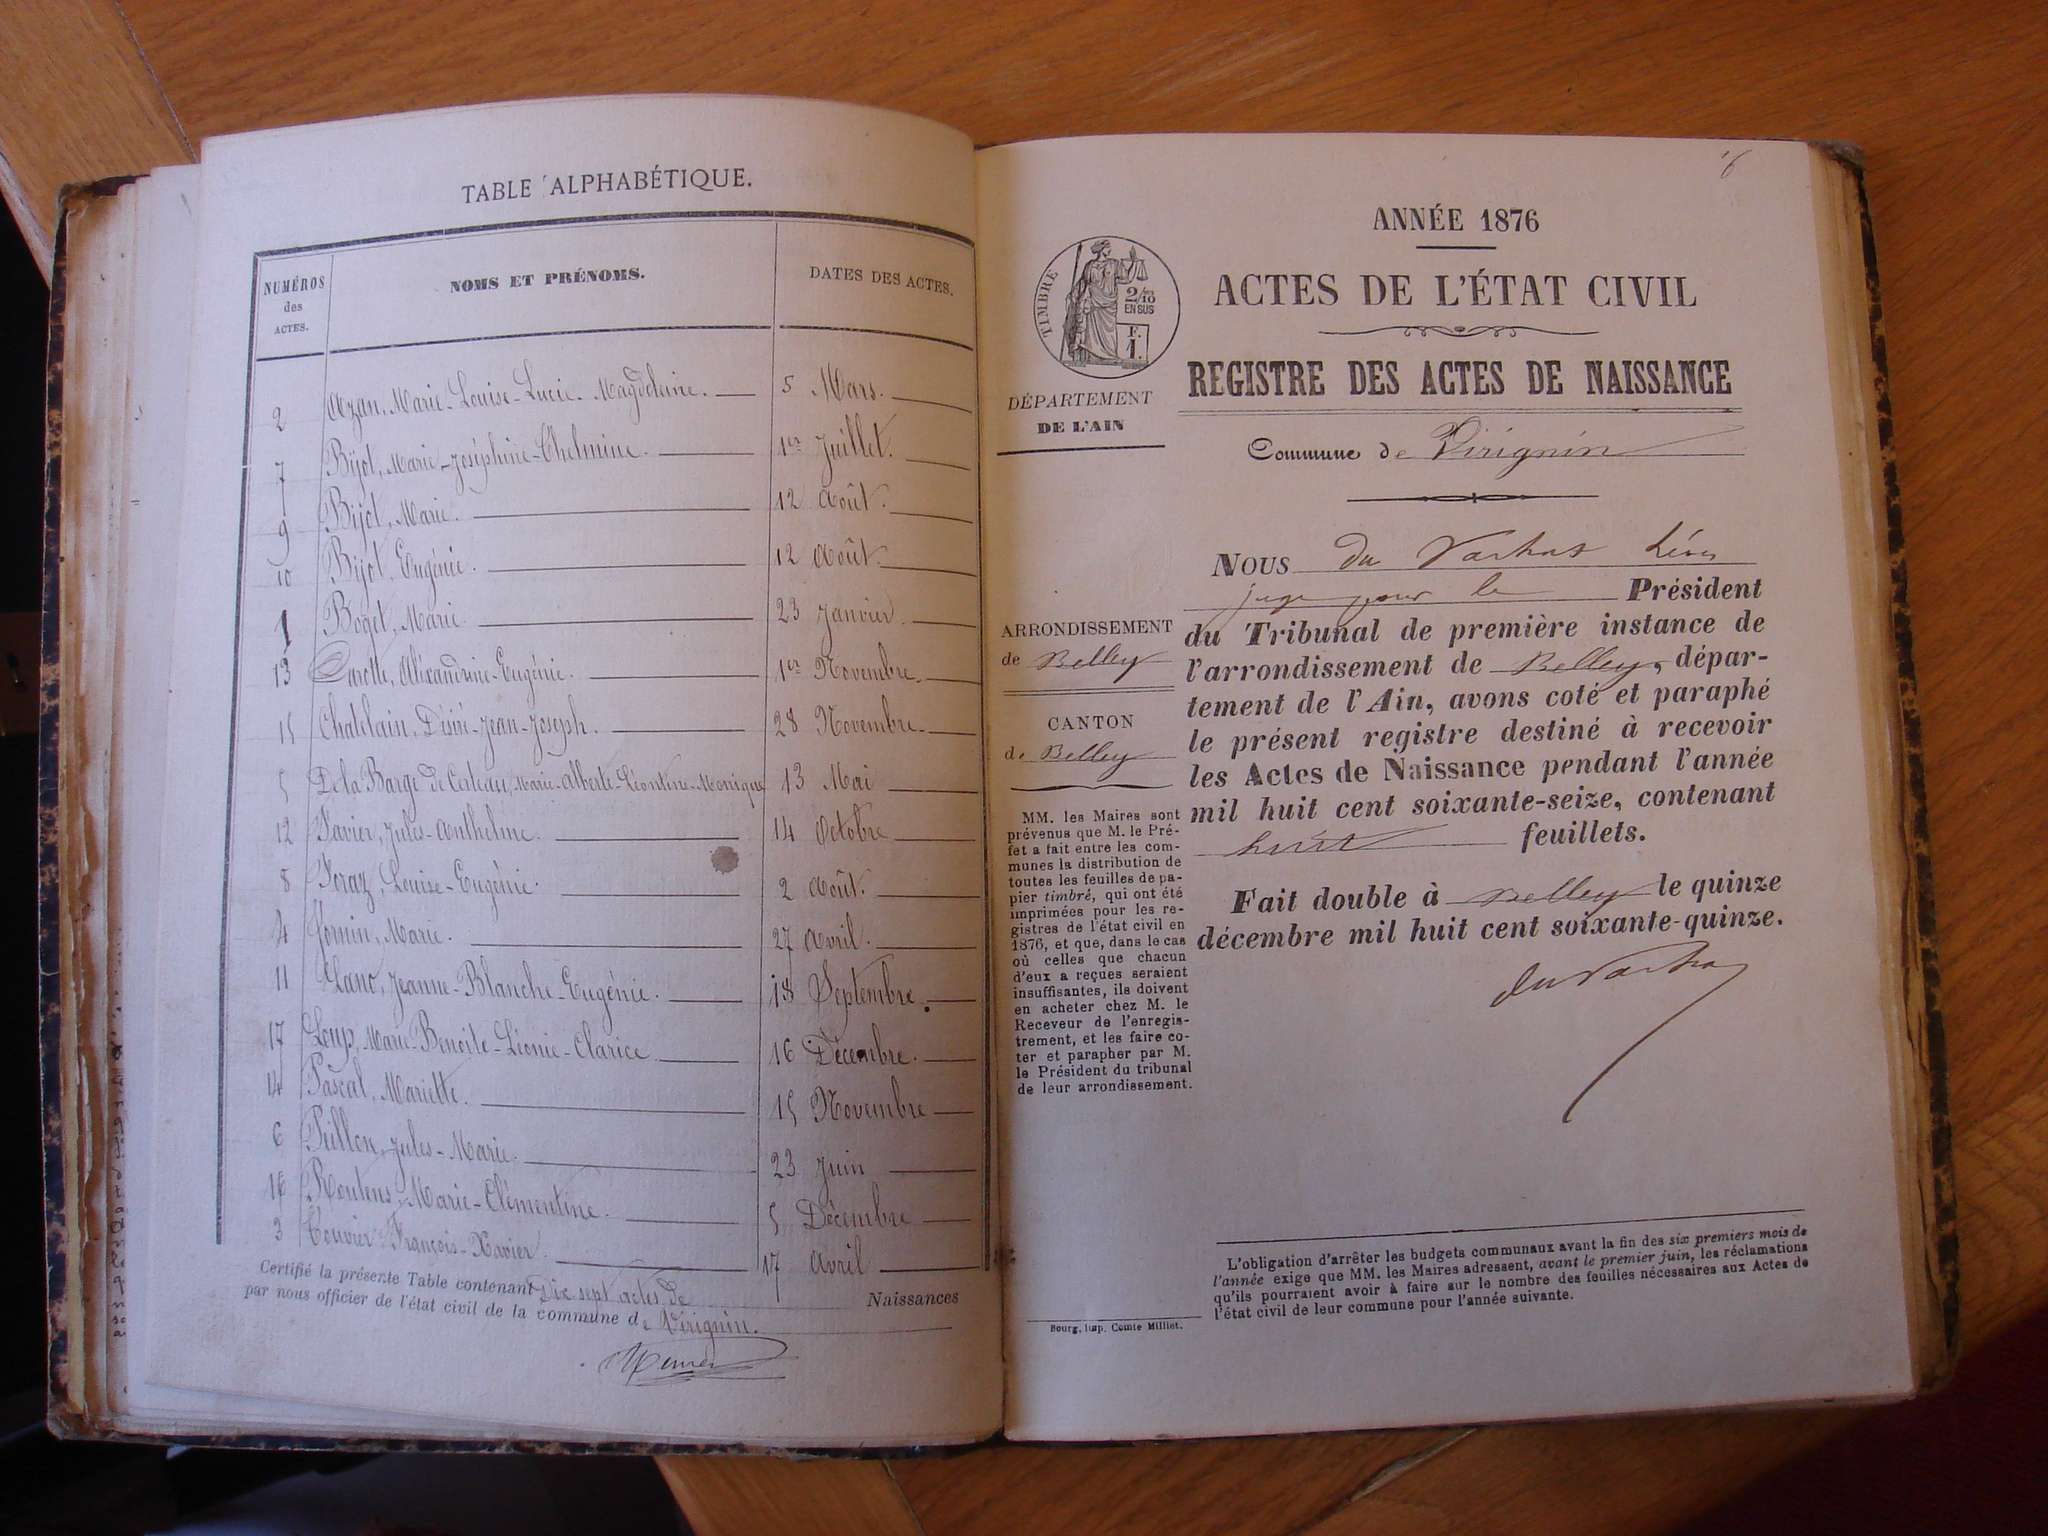 TABLE ALPHABÉTIQUE.
NUMÉROS
des
ACTES.
NOMS ET PRÉNOMS.
DATES DES ACTES.
2 Azan, Marie-Louise-Lucie-Magdeleine. 5 Mars.
7 Bijot, Marie-Joséphine-Thelmine. 1er Juillet.
9 Bijot, Marie. 12 Août.
10 Bijot, Eugénie. 12 Août.
1 Boget, Marie. 23 Janvier.
13 Carotte, Aléxandrine-Eugénie. 1er Novembre.
15 Chatelain, Désiré-Jean-Joseph. 28 Novembre.
5 De la Barge de Certeau, Marie-Alberte-Léontine-Monique 13 Mai
12 Favier, Jules-Anthelme. 14 Octobre
8 Foraz, Louise-Eugénie. 2 Août.
4 Marie. 27 Avril.
11 Jeanne-Blanche-Eugénie. 18 Septembre.
17 Loup, Marie-Benoite-Léonie-Clarice. 16 Décembre.
14 Pascal, Mariette. 15 Novembre
6 Peillon, Jules-Marie. 23 Juin
16 Roulens, Marie-Clémentine. 5 Décembre
3 Touvier François-Xavier. 17 Avril
Certifié la présente Table contenant Dix sept actes de Naissances
par nous officier de l'état civil de la commune de Virignin.
16
ANNÉE 1876
TIMBRE
2/10
EN SUS
F.
1.
ACTES DE L'ÉTAT CIVIL
REGISTRE DES ACTES DE NAISSANCE
DÉPARTEMENT
DE L'AIN
Commune de Virignin
ARRONDISSEMENT
de Belley
CANTON
de Belley
MM. les Maires sont
prévenus que M. le Pré-
fet a fait entre les com-
munes la distribution de
toutes les feuilles de pa-
pier timbré, qui ont été
imprimées pour les re-
gistres de l'état civil en
1876, et que, dans le cas
où celles que chacun
d'eux a reçues seraient
insuffisantes, ils doivent
en acheter chez M. le
Receveur de l'enregis-
trement, et les faire co-
ter et parapher par M.
le Président du tribunal
de leur arrondissement.
Bourg, imp. Comte Milliet.
NOUS du
juge pour le Président
du Tribunal de première instance de
l'arrondissement de Belley, dépar-
tement de l'Ain, avons coté et paraphé
le présent registre destiné à recevoir
les Actes de Naissance pendant l'année
mil huit cent soixante-seize, contenant
huit feuillets.
Fait double à Belley le quinze
décembre mil huit cent soixante-quinze.
L'obligation d'arrêter les budgets communaux avant la fin des six premiers mois de
l'année exige que MM. les Maires adressent, avant le premier juin, les réclamations
qu'ils pourraient avoir à faire sur le nombre des feuilles nécessaires aux Actes de
l'état civil de leur commune pour l'année suivante.